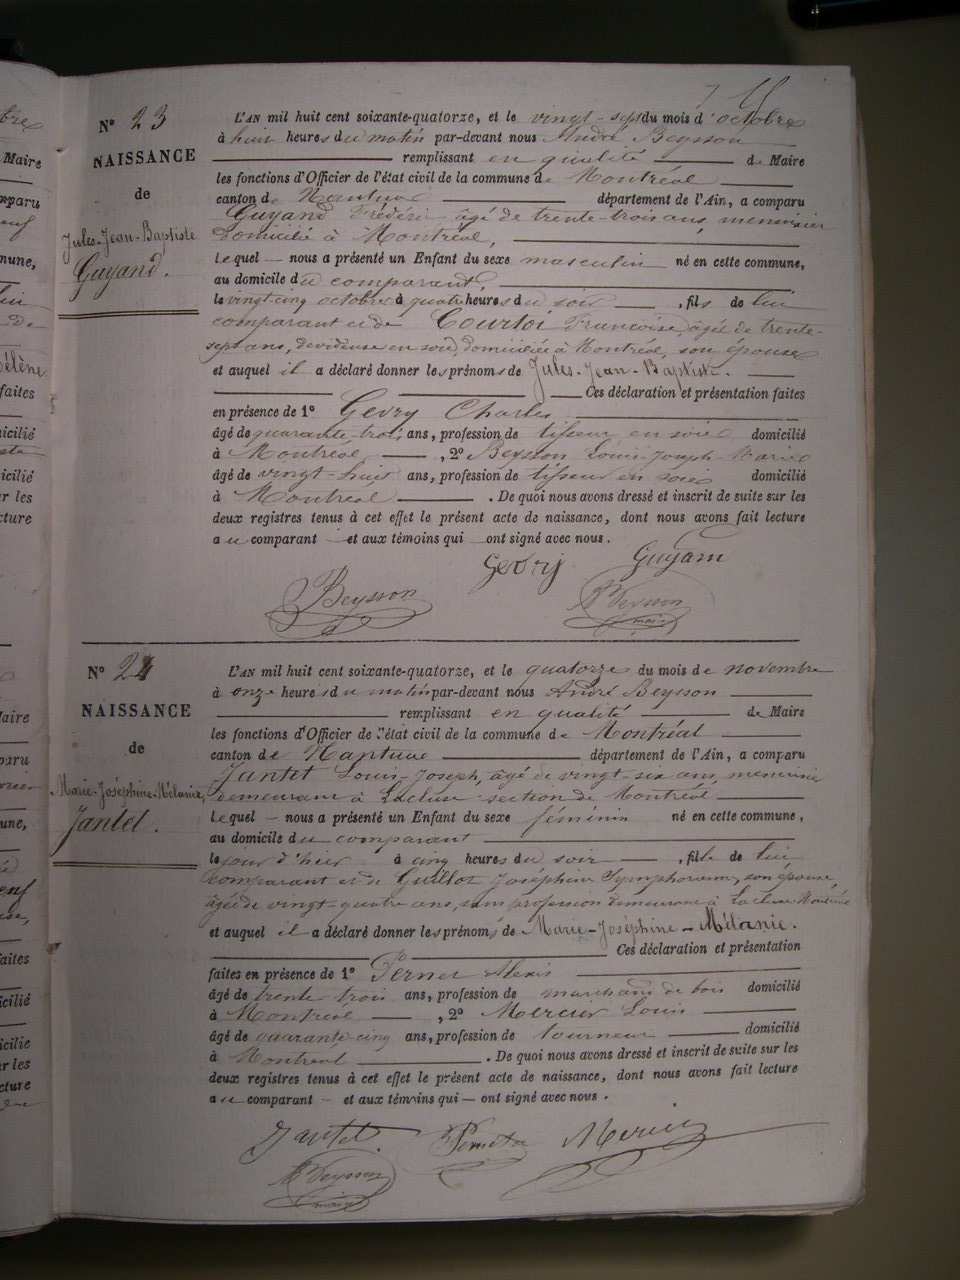 N° 23
NAISSANCE
de
Jules-Jean-Baptiste
Guyand.
L'AN mil huit cent soixante-quatorze, et le vingt-sept du mois d'octobre
à huit heures du matin par-devant nous André Beysson
remplissant en qualité de Maire
les fonctions d'Officier de l'état civil de la commune de Montréal
canton de Nantua département de l'Ain, a comparu
Guyand Frédéric âgé de trente-trois ans, menuisier
domicilié à Montréal,
Lequel nous a présenté un Enfant du sexe masculin né en cette commune,
au domicile du comparant,
le vingt-cinq octobre à quatre heures du soir, fils de lui
comparant et de Courtoi Françoise, âgée de trente-
sept ans, dévideuse en soie, domiciliée à Montréal, son épouse
et auquel il a déclaré donner les prénoms de Jules-Jean-Baptiste.
Ces déclaration et présentation faites
en présence de 1° Gevry Charles
âgé de quarante-trois ans, profession de tisseur en soie domicilié
à Montréal, 2° Beysson Louis-Joseph-Marie
âgé de vingt-huit ans, profession de tisseur en soie domicilié
à Montréal. De quoi nous avons dressé et inscrit de suite sur les
deux registres tenus à cet effet le présent acte de naissance, dont nous avons fait lecture
au comparant et aux témoins qui ont signé avec nous.
Gevry Guyand
Beysson Beysson
maire
N° 24
NAISSANCE
de
Marie-Joséphine-Mélanie
Jantet.
L'AN mil huit cent soixante-quatorze, et le quatorze du mois de novembre
à onze heures du matin par-devant nous André Beysson
remplissant en qualité de Maire
les fonctions d'Officier de l'état civil de la commune de Montréal
canton de Nantua département de l'Ain, a comparu
Jantet Louis-Joseph, âgé de vingt-six ans, menuisier
demeurant à Lacluse section de Montréal
Lequel nous a présenté un Enfant du sexe féminin né en cette commune,
au domicile du comparant
le jour d'hier à cinq heures du soir, fille de lui
comparant et de Guillot Joséphine Symphorienne, son épouse,
âgée de vingt-quatre ans, sans profession demeurant à Lacluse Montréal
et auquel il a déclaré donner les prénoms de Marie-Joséphine-Mélanie.
Ces déclaration et présentation
faites en présence de 1° Alexis
âgé de trente trois ans, profession de marchand de bois domicilié
à Montréal, 2° Mercier Louis
âgé de quarante-cinq ans, profession de tourneur domicilié
à Montréal. De quoi nous avons dressé et inscrit de suite sur les
deux registres tenus à cet effet le présent acte de naissance, dont nous avons fait lecture
au comparant et aux témoins qui ont signé avec nous.
Jantet Mercier
Beysson
maire